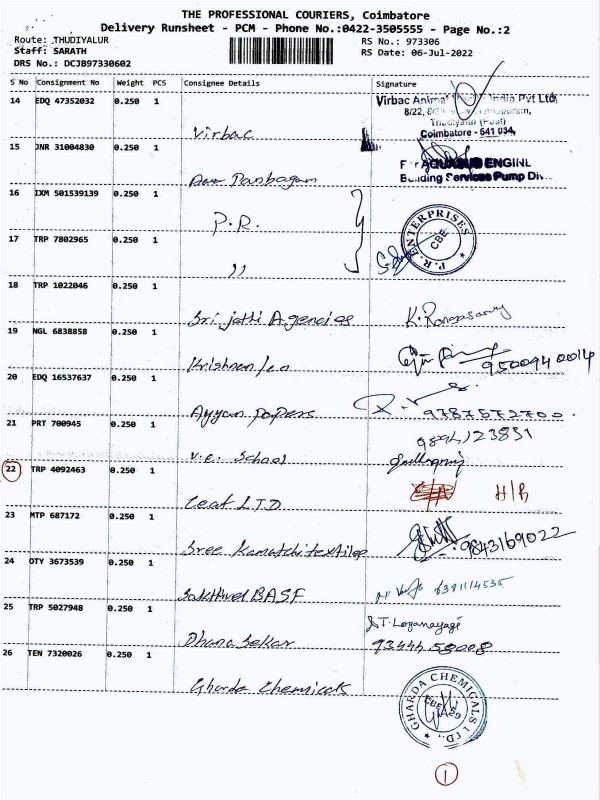 THE PROFESSIONAL COURIERS, Coimbatore
Delivery Runsheet - PCM - Phone No.:0422-3505555 - Page No.:2
Route: THUDIYALUR
RS No.: 973306
Staff: SARATH
RS Date: 06-Jul-2022
DRS No.: DCJB97330602
S No Consignment No Weight PCS Consignee Details Signature
14 EDQ 47352032 0.250 1
Virbac
Virbac Animal India Pvt Ltd.
8/22,
Thudiyalur (Post)
Coimbatore - 641 034.
15 JNR 31004830 0.250 1
For AQUASUB ENGINE
Building Services Pump Div
16 IXM 501539139 0.250 1
P.R.
P.R. ENTERPRISES
CBE
17 TRP 7802965 0.250 1
,,
18 TRP 1022046 0.250 1
Sri jothi Agencies K. Rangasamy
19 NGL 6838858 0.250 1
9500940014
20 EDQ 16537637 0.250 1
Ayyan papers 9787572700.
21 PRT 700945 0.250 1
9894123831
V.C. School
22 TRP 4092463 0.250 1
Ceat LTD
23 MTP 687172 0.250 1
Sree Kamatchi textiles 9843169022
24 OTY 3673539 0.250 1
Sakthivel BASF
25 TRP 5027948 0.250 1
T. Loganayagi
Dhana Sekar 9344458008
26 TEN 7320026 0.250 1
Gharda Chemicals
GHARDA CHEMICALS LTD.
1